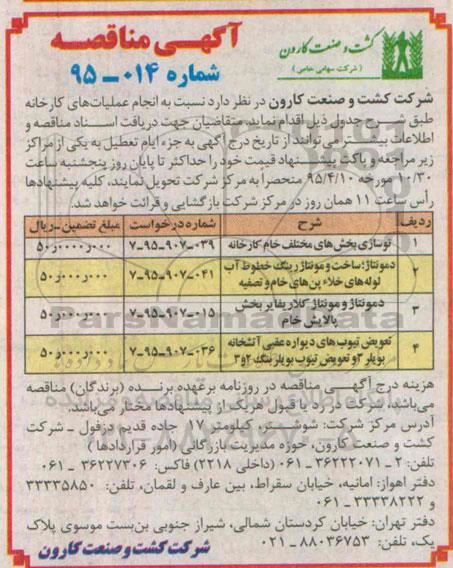 کشت و صنعت کارون
( شرکت سهامی خاص )
آگهی مناقصه
شماره ۰۱۴-۹۵
شرکت کشت و صنعت کارون در نظر دارد نسبت به انجام عملیات‌های کارخانه
طبق شرح جدول ذیل اقدام نماید، متقاضیان جهت دریافت اسناد مناقصه و
اطلاعات بیشتر می‌توانند از تاریخ درج آگهی به جزء ایام تعطیل به یکی از مراکز
زیر مراجعه و پاکت پیشنهاد قیمت خود را حداکثر تا پایان روز پنجشنبه ساعت
۱۰/۳۰ مورخه ۹۵/۴/۱۰ منحصراً به مرکز شرکت تحویل نمایند، کلیه پیشنهادها
رأس ساعت ۱۱ همان روز در مرکز شرکت بازگشایی و قرائت خواهد شد.
ردیف شرح شماره درخواست مبلغ تضمین-ریال
۱ نوسازی بخش های مختلف خام کارخانه ۷-۹۵-۹۰۷-۰۳۹ ۵۰ر۰۰۰ر۰۰۰
۲ دمونتاژ؛ ساخت و مونتاژ رینگ خطوط آب
لوله‌های خلاء پن‌های خام و تصفیه ۷-۹۵-۹۰۷-۰۴۱ ۵۰ر۰۰۰ر۰۰۰
۳ دمونتاژ و مونتاژ کلاریفایر بخش
پالایش خام ۷-۹۵-۹۰۷-۰۱۵ ۵۰ر۰۰۰ر۰۰۰
۴ تعویض تیوب های دیواره عقبی آتشخانه
بویلر ۳ و تعویض تیوب بویلر بنگ ۲ و ۳ ۷-۹۵-۹۰۷-۰۳۶ ۵۰ر۰۰۰ر۰۰۰
هزینه درج آگهی مناقصه در روزنامه برعهده برنده (برندگان) مناقصه
می‌باشد، شرکت در رد یا قبول هریک از پیشنهادها مختار می‌باشد.
آدرس مرکز شرکت: شوشتر، کیلومتر ۱۷ جاده قدیم دزفول - شرکت
کشت و صنعت کارون، حوزه مدیریت بازرگانی (امور قراردادها)
تلفن: ۲ - ۳۶۲۲۲۰۷۱-۰۶۱ (داخلی ۲۲۱۸) فاکس: ۳۶۲۲۷۳۰۶ - ۰۶۱
دفتر اهواز: امانیه، خیابان سقراط، بین عارف و لقمان، تلفن: ۳۳۳۳۵۸۵۰
و ۳۳۳۳۸۲۲۲ - ۰۶۱
دفتر تهران: خیابان کردستان شمالی، شیراز جنوبی بن‌بست موسوی پلاک
یک، تلفن: ۸۸۰۳۶۷۵۳ - ۰۲۱
شرکت کشت و صنعت کارون